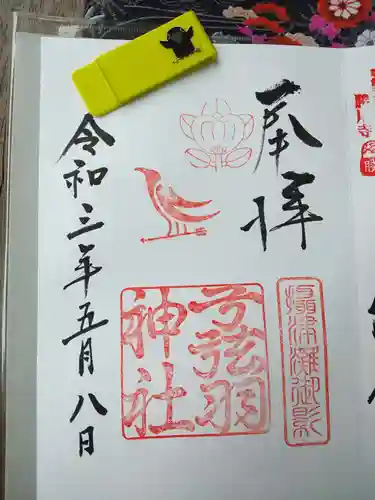 奉拝
摂津灘御影
弓弦羽
神社
令和三年五月八日